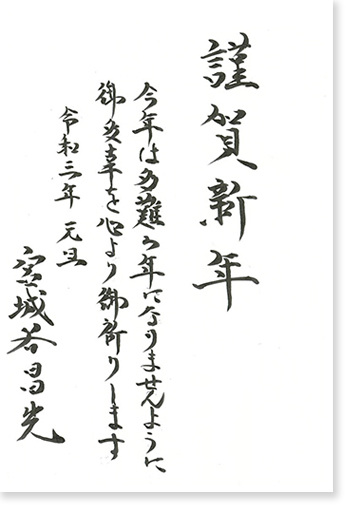 謹賀新年
今年は多難な年になりませんように
御多幸を心より御祈りします
令和三年 元旦
宮城谷昌光